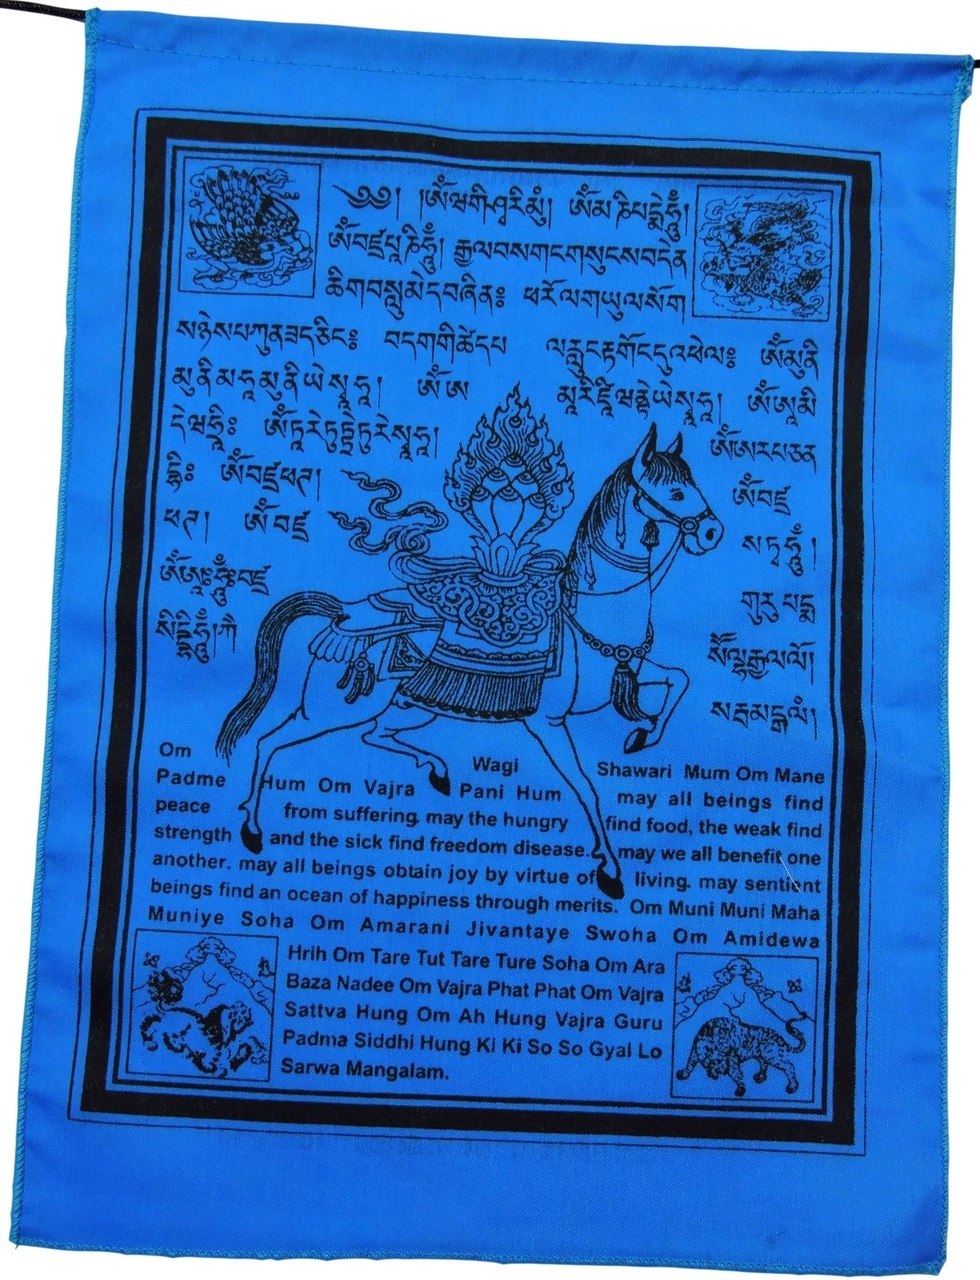 ༄༅། །ཨོཾ་ཝ་གི་ཤྭ་རི་མུཾ། ཨོཾ་མ་ཎི་པདྨེ་ཧཱུྃ།
ཨོཾ་བཛྲ་པཱ་ཎི་ཧཱུྃ། རྒྱལ་བས་གང་གསུངས་བདེན་
ཚིག་བསླུ་མེད་བཞིན༔ ཕ་རོལ་གཡུལ་སོག
ས་ཉེས་པ་ཀུན་ཟད་ཅིང༔ བདག་གི་ཚེ་དཔ ལ་རླུང་རྟ་གོང་དུ་འཕེལ༔ ཨོཾ་མུ་ནི
མུ་ནི་མ་ཧཱ་མུ་ནི་ཡེ་སྭཱ་ཧཱ། ཨོཾ་ཨ ཨོཾ་ཨ་མི
དེ་ཝ་ཧྲཱིཿ ཨོཾ་ཏཱ་རེ་ཏུཏྟཱ་རེ་ཏུ་རེ་སྭཱ་ཧཱ། ཨོཾ་ཨ་ར་པ་ཙ་ན
དྷཱིཿ ཨོཾ་བཛྲ་ཕཊ། ཨོཾ་བཛྲ
ཕཊ། ཨོཾ་བཛྲ སཏྭ་ཧཱུྃ།
ཨོཾ་ཨཱཿཧཱུྃ་བཛྲ གུ་རུ་པདྨ
སིདྡྷི་ཧཱུྃ།ཀི སོ་ལྷ་རྒྱལ་ལོ།
སརྦ་མངྒ་ལཾ།
Om Wagi Shawari Mum Om Mane
Padme Hum Om Vajra Pani Hum may all beings find
peace from suffering. may the hungry find food, the weak find
strength and the sick find freedom disease. may we all benefit one
another. may all beings obtain joy by virtue of living. may sentient
beings find an ocean of happiness through merits. Om Muni Muni Maha
Muniye Soha Om Amarani Jivantaye Swoha Om Amidewa
Hrih Om Tare Tut Tare Ture Soha Om Ara
Baza Nadee Om Vajra Phat Phat Om Vajra
Sattva Hung Om Ah Hung Vajra Guru
Padma Siddhi Hung Ki Ki So So Gyal Lo
Sarwa Mangalam.